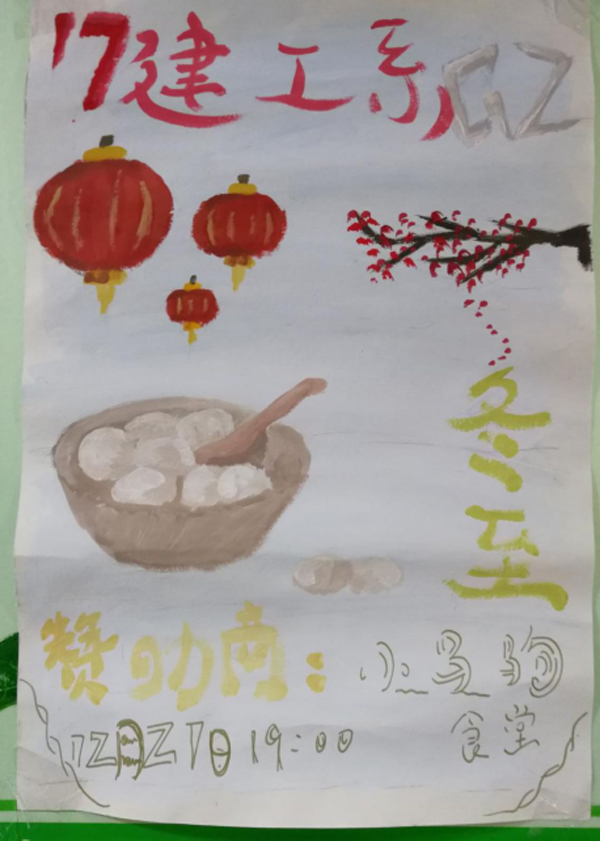 17建工系GZ
冬至
赞助商：小马驹
12月21日19:00 食堂